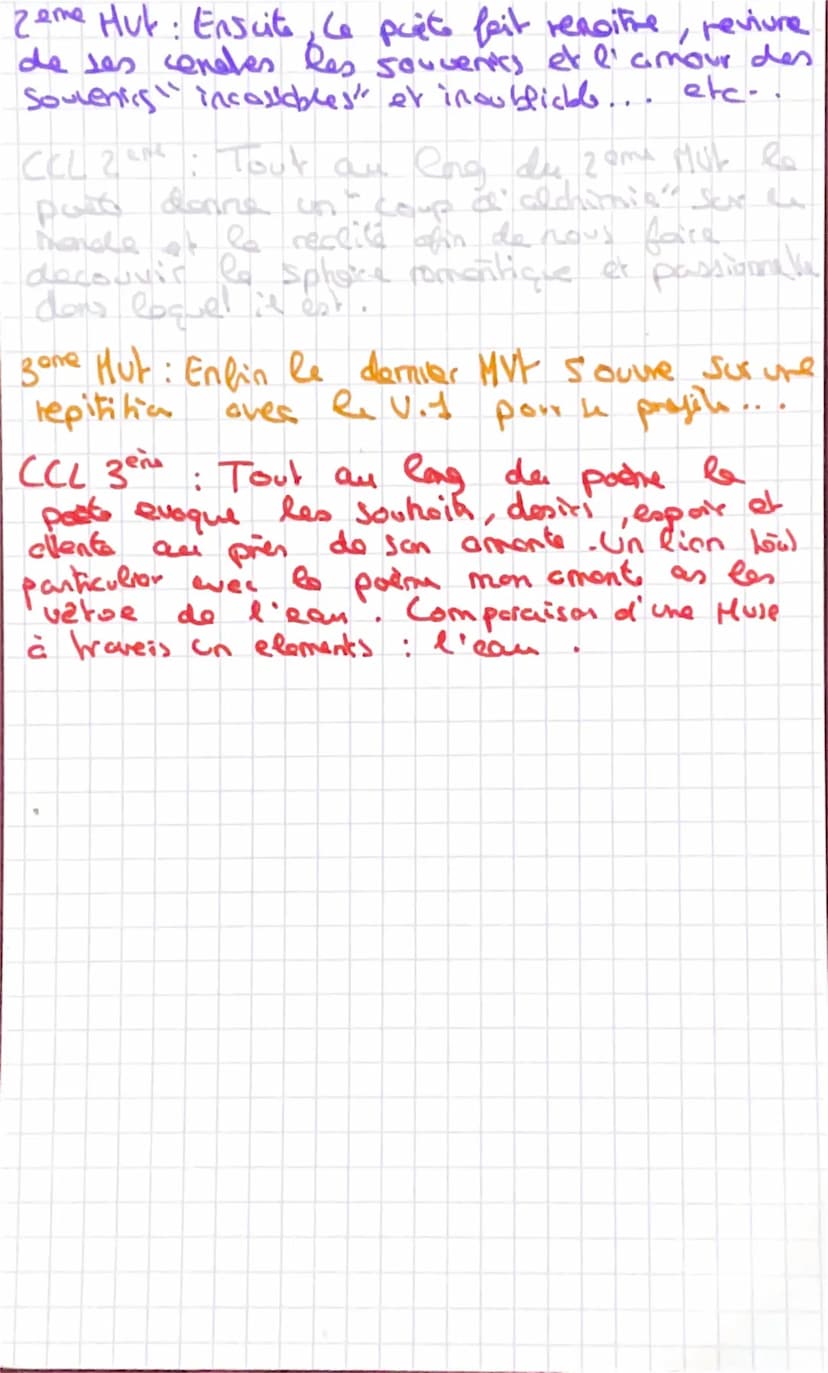 2ème Mvt : Ensuite, le poète fait renaître, revivre
de ses cendres les souvenirs et l'amour des
souvenirs "incassables" et inoubliable... etc..
CCL 2ème : Tout au long du 2ème Mvt le
poète donne un "coup d'alchimie" sur le
monde et la réalité afin de nous faire
découvrir la sphère romantique et passionnelle
dans lequel il est.
3ème Mvt : Enfin le dernier MVt s'ouvre sur une
repitition avec le V.1 pour le
CCL 3ème : Tout au long du poème le
poète evoque les souhaits, desirs, espoir et
attente au près de son amante. Un lien
particulier avec le poème mon amante as les
vertue de l'eau. Comparaison d'une Muse
à travers un elements : l'eau.